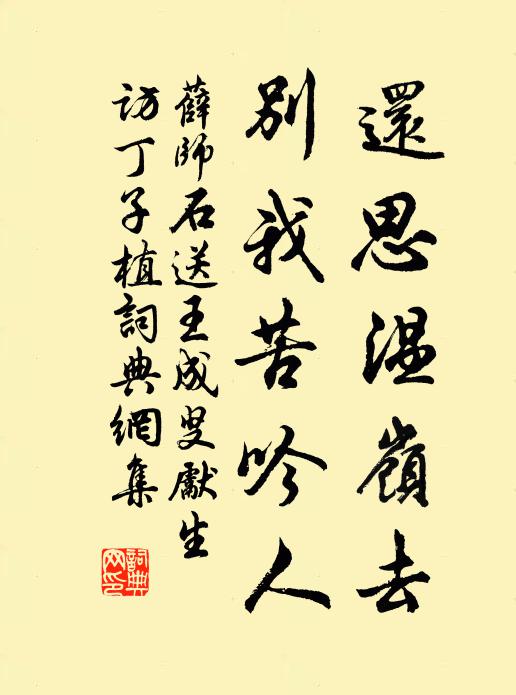 還思温嶺去
別我苦吟人
薛師石送王成叟獻生
訪丁子植詞典網集
詞典網印